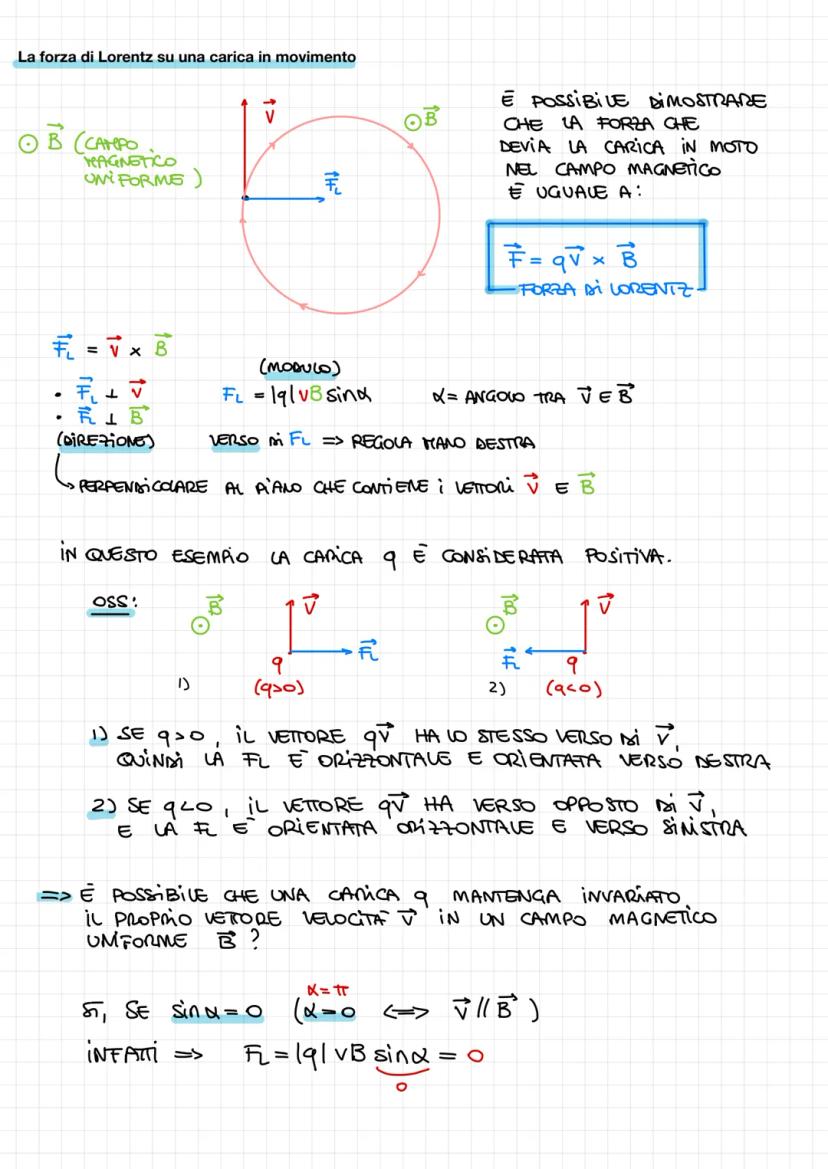 La forza di Lorentz su una carica in movimento
⊙ B⃗ (CAMPO
MAGNETICO
UNIFORME)
V⃗
⊙ B⃗
F⃗L
È POSSIBILE DIMOSTRARE
CHE LA FORZA CHE
DEVIA LA CARICA IN MOTO
NEL CAMPO MAGNETICO
È UGUALE A:
F⃗ = qV⃗ × B⃗
FORZA DI LORENTZ
F⃗L = V⃗ × B⃗
• F⃗L ⊥ V⃗
• F⃗L ⊥ B⃗
(DIREZIONE)
(MODULO)
FL = |q|vB sinα
α = ANGOLO TRA V⃗ E B⃗
VERSO DI FL => REGOLA MANO DESTRA
↳ PERPENDICOLARE AL PIANO CHE CONTIENE i VETTORI V⃗ E B⃗
IN QUESTO ESEMPIO LA CARICA q È CONSIDERATA POSITIVA.
OSS:
⊙ B⃗
V⃗
F⃗L
q
1) (q>0)
⊙ B⃗
V⃗
F⃗L
q
2) (q<0)
1) SE q>0, IL VETTORE qV⃗ HA LO STESSO VERSO DI V⃗,
QUINDI LA FL È ORIZZONTALE E ORIENTATA VERSO DESTRA
2) SE q<0, IL VETTORE qV⃗ HA VERSO OPPOSTO DI V⃗,
E LA FL È ORIENTATA ORIZZONTALE E VERSO SINISTRA
=> È POSSIBILE CHE UNA CARICA q MANTENGA INVARIATO
IL PROPRIO VETTORE VELOCITÀ V⃗ IN UN CAMPO MAGNETICO
UNIFORME B⃗ ?
α=π
SÌ, SE sinα=0 (α=0 <=> V⃗ // B⃗)
INFATTI => FL = |q| vB sinα = 0
0